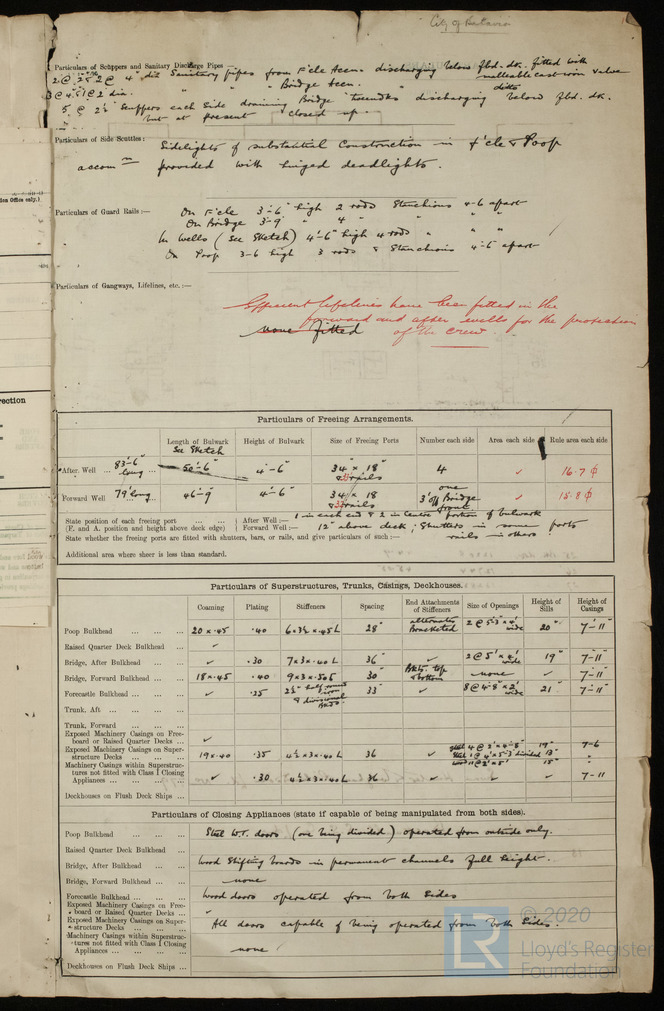 City of Batavia
Particulars of Scuppers and Sanitary Discharge Pipes
2 @ 4" dia Sanitary pipes from F'cle Accn discharging below fbd. dk. fitted with
malleable cast iron valve
3 @ 4" 5 @ 2" dia. " " " Bridge Accn. " " ditto
5 @ 2½" Scuppers each side draining Bridge 'tweendks discharging below fbd. dk.
but at present closed up.
Particulars of Side Scuttles:
Sidelights of substantial Construction in f'cle & Poop
accomn provided with hinged deadlights.
Particulars of Guard Rails:—
On F'cle 3'-6" high 2 rods Stanchions 4'-6 apart
On Bridge 3'-9 " 4 " " " "
In Wells (See Sketch) 4'-6" high 4 rods " " "
On Poop 3-6 high 3 rods & Stanchions 4'-6" apart
Particulars of Gangways, Lifelines, etc.:—
Efficient lifelines have been fitted in the
forward and after wells for the protection
none fitted of the crew
tion Office only.)
rection
Particulars of Freeing Arrangements.
Length of Bulwark Height of Bulwark Size of Freeing Ports Number each side Area each side Rule area each side
See Sketch
After Well ... 83'-6" long ... 50'-6" 4'-6" 34" × 18" 4 ✓ 16.7
& rails
Forward Well 79' long ... 46'-9" 4'-6" 34" × 18 one 3' off Bridge front ✓ 15.8
& rails
State position of each freeing port ... ... After Well:— 1 in each end & 2 in centre portion of bulwark
(F. and A. position and height above deck edge) Forward Well:— 12" above deck; Shutters in some ports
State whether the freeing ports are fitted with shutters, bars, or rails, and give particulars of such:— rails in others
Additional area where sheer is less than standard.
Particulars of Superstructures, Trunks, Casings, Deckhouses.
Coaming Plating Stiffeners Spacing End Attachments of Stiffeners Size of Openings Height of Sills Height of Casings
Poop Bulkhead ... ... ... 20 × .45 .40 6 × 3½ × .45 L 28" alternates Bracketed 2 @ 5'-3" × 4' wide 20" 7'-11"
Raised Quarter Deck Bulkhead ... ✓
Bridge, After Bulkhead ... ... ✓ .30 7 × 3 × .40 L 36" ✓ 2 @ 5' × 4' wide 19" 7'-11"
Bridge, Forward Bulkhead ... ... 18 × .45 .40 9 × 3 × .50 30" Bkts top & bottom none ✓ 7'-11"
Forecastle Bulkhead ... ... ✓ .25 2½" half round iron & divisional Bhds. 33" ✓ 8 @ 4'-8" × 2' wide 21" 7'-11"
Trunk, Aft ... ... ...
Trunk, Forward ... ... ...
Exposed Machinery Casings on Free-
board or Raised Quarter Decks ... ✓
Exposed Machinery Casings on Super-
structure Decks ... ... ... 19 × .40 .35 4½ × 3 × .40 L 36 ✓ 19" 7-6
Machinery Casings within Superstruc-
tures not fitted with Class I Closing
Appliances ... ... ... ✓ .30 4½ × 3 × .40 L 36 ✓ ✓ ✓ 7-11
Deckhouses on Flush Deck Ships ...
Particulars of Closing Appliances (state if capable of being manipulated from both sides).
Poop Bulkhead ... ... ... Steel W.T. doors (one being divided) operated from outside only.
Raised Quarter Deck Bulkhead ...
Bridge, After Bulkhead ... ... Wood Shifting boards in permanent channels full height.
Bridge, Forward Bulkhead ... ... none
Forecastle Bulkhead ... ... Wood doors operated from both sides
Exposed Machinery Casings on Free-
board or Raised Quarter Decks ... ✓
Exposed Machinery Casings on Super-
structure Decks ... ... ... All doors capable of being operated from both sides.
Machinery Casings within Superstruc-
tures not fitted with Class I Closing
Appliances ... ... ... none
Deckhouses on Flush Deck Ships ...
© 2020
LR
Lloyd's Register
Foundation